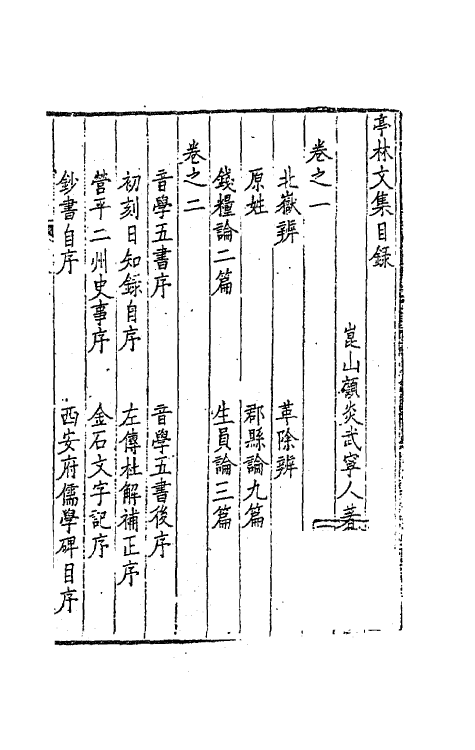 亭林文集目録
崑山顧炎武寧人著
卷之一
北嶽辨　革除辨
原姓　郡縣論九篇
錢糧論二篇　生員論三篇
卷之二
音學五書序　音學五書後序
初刻日知録自序　左傳杜解補正序
營平二州史事序　金石文字記序
鈔書自序　西安府儒學碑目序